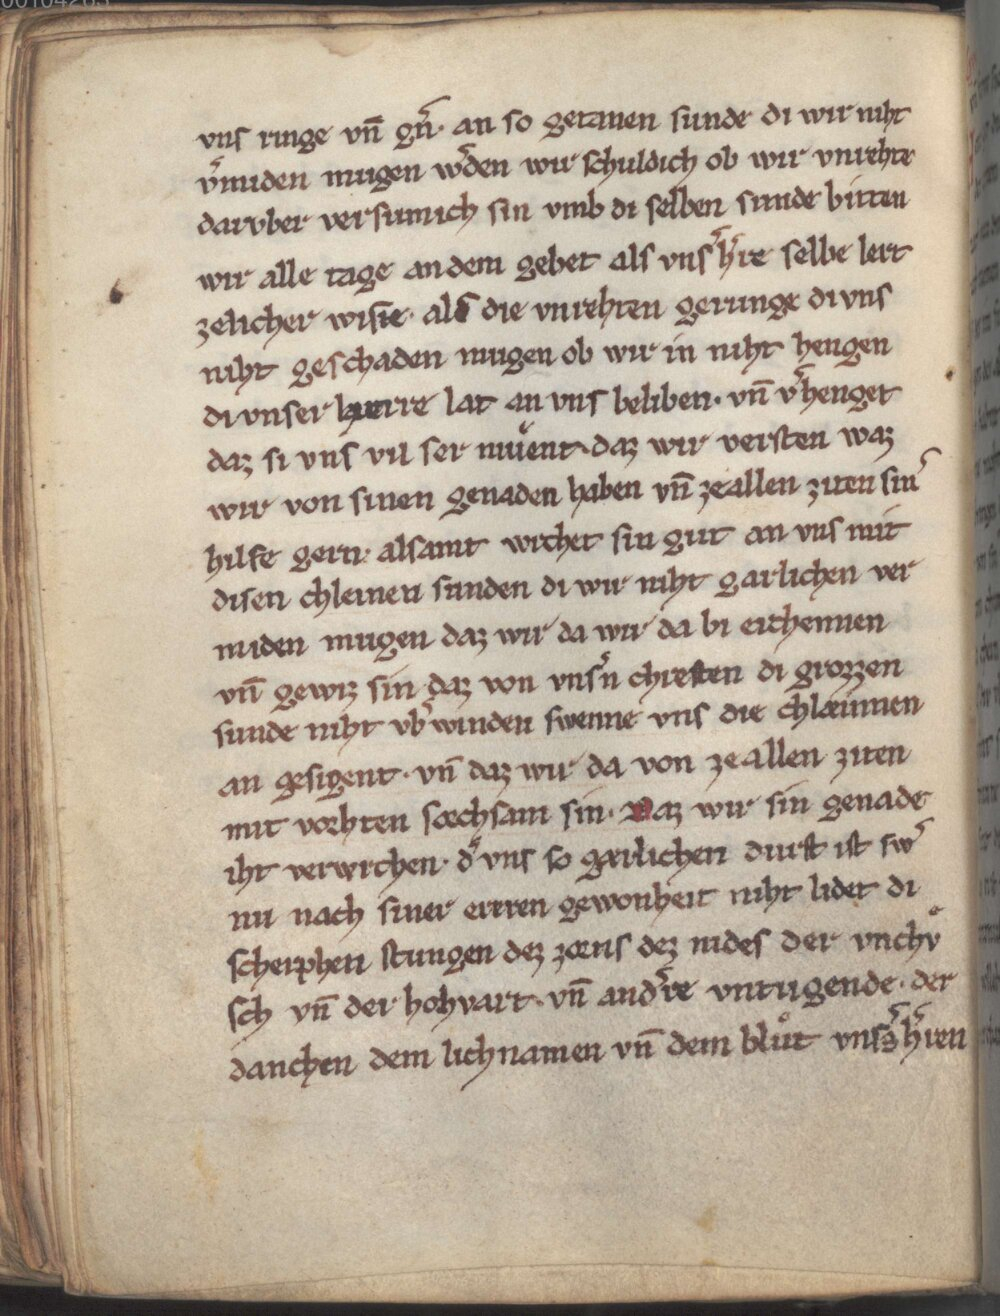 00104263
vns ringe vn̄ gn̄· an so getanen sunde di wir niht
v̓miden mugen w̓den wir schuldich ob wir vnrehte
darvber versumich sin vmb di selben sunde bitten
wir alle tage an dem gebet als vns h̓re selbe lert
zelicher wisīe· als die vnrehten gerunge di vns
niht geschaden mugen ob wir in niht hengen
di vnser herre lat an vns beliben· vn̄ v̓henget
daz si vns vil ser muͤent· daz wir versten waz
wir von sinen genaden haben vn̄ ze allen ziten sin̓
hilfe gern· alsamt wrchet sin gut an vns mit
disen chleinen sunden di wir niht garlichen ver
miden mugen daz wir da wir da bi erchennen
vn̄ gewiz sin daz von vnsn̓ chreften di grozzen
sunde niht vb̓winden swenne vns die chlæinnen
an gesigent· vn̄ daz wir da von ze allen ziten
mit vorhten sæchsam sin· Daz wir sin genade
iht verwrchen· d̓ vns so gærlichen durft ist sw̓
nu nach siner erren gewonheit niht lidet di
scherphen stungen dez zorns dez nides der vnchvͦ
sch vn̄ der hohvart· vn̄ and̓re vntugende· der
danchen dem lichnamen vn̄ dem bluͦt vnss̓ h̓ren